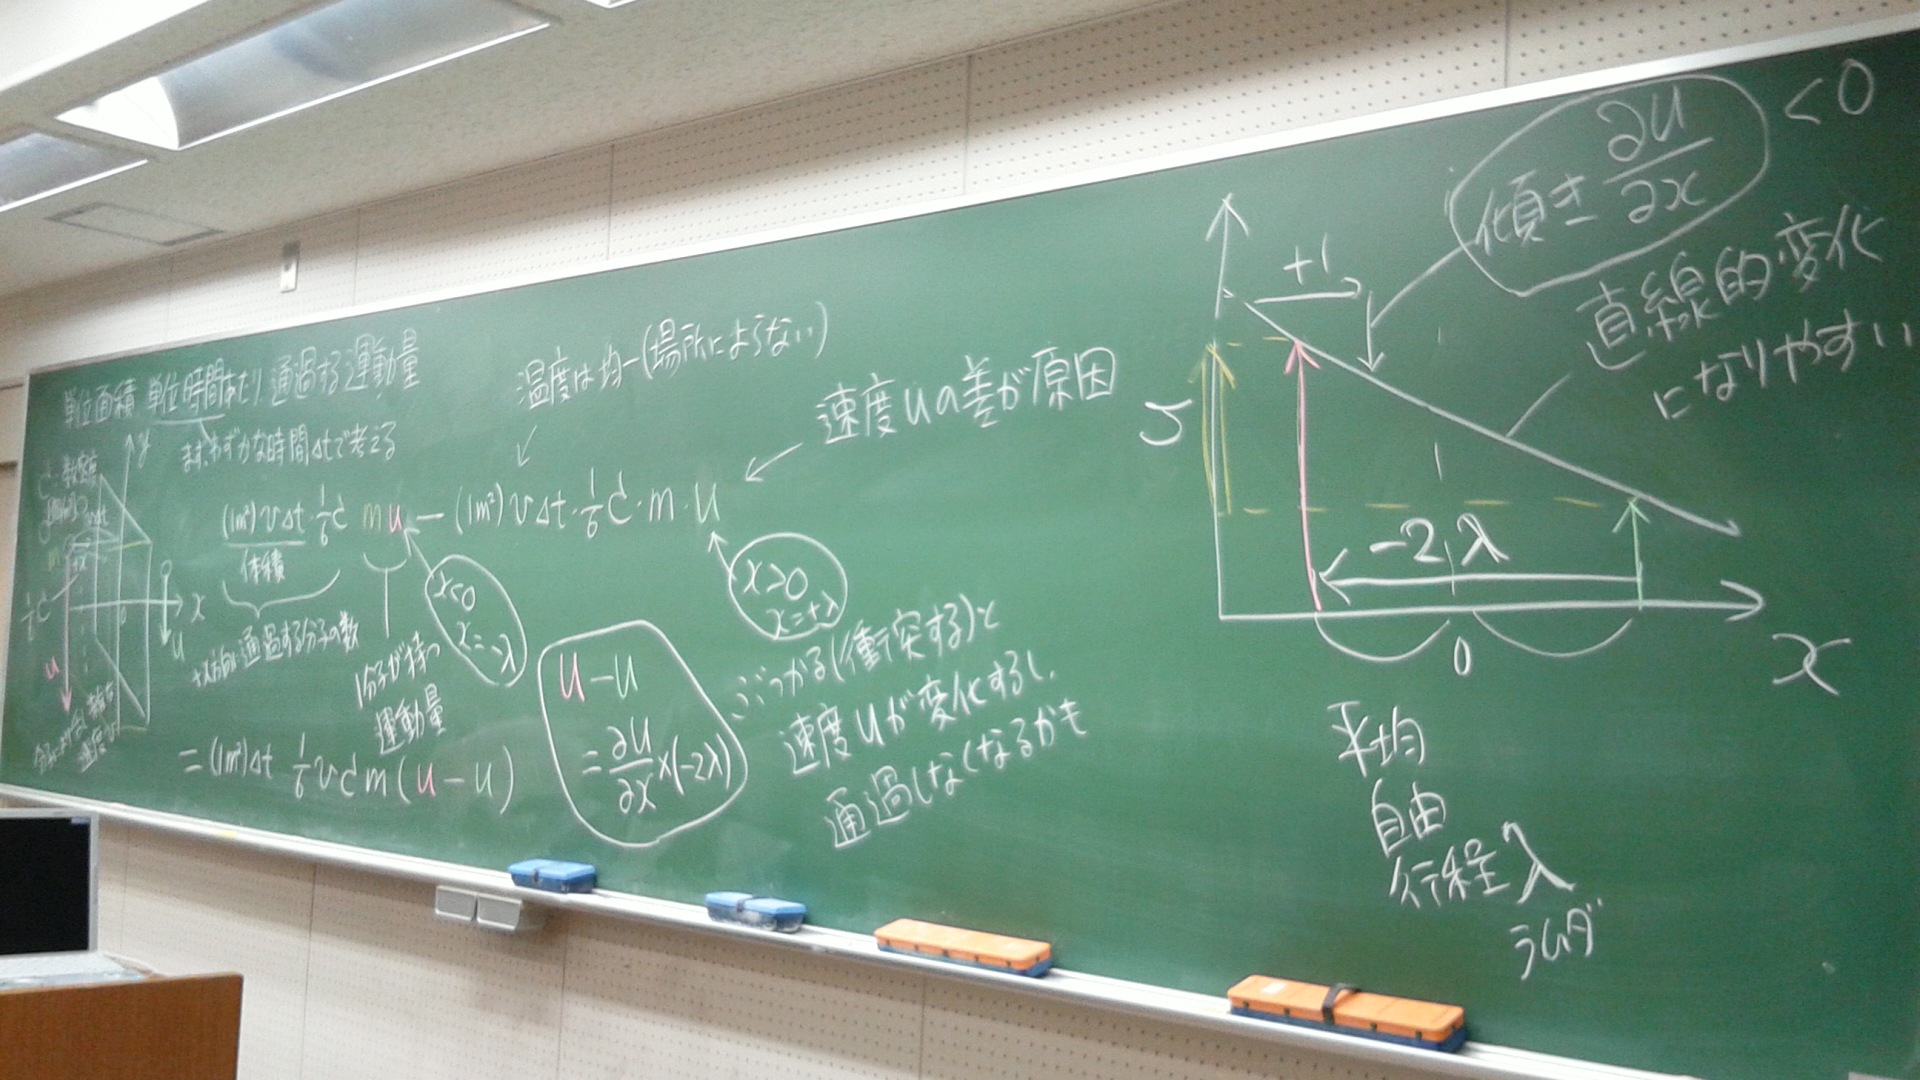 単位面積 単位時間あたり 通過する運動量
まず、わずかな時間Δtで考える
y
x
u
温度は均一(場所によらない)
速度uの差が原因
(1m²)vΔt・1/6 c・m u − (1m²)vΔt・1/6 c・m・u
体積
x<0
x=-λ
x>0
x=+λ
+x方向に通過する分子の数
1分子が持つ
運動量
=(1m²)Δt 1/6 v c m (u−u)
u−u
=∂u/∂x×(-2λ)
ぶつかる(衝突する)と
速度uが変化するし、
通過しなくなるかも
傾き ∂u/∂x <0
+1
直線的変化
になりやすい
-2λ
0
x
平均
自由
行程λ
ラムダ